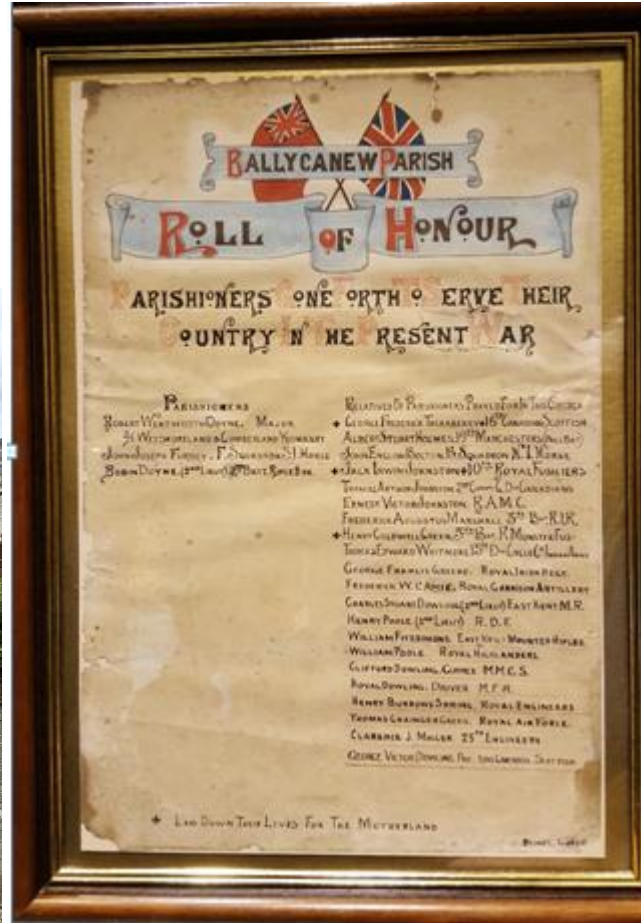 BALLYCANEW PARISH
ROLL OF HONOUR
PARISHIONERS GONE FORTH TO SERVE THEIR
COUNTRY IN THE PRESENT WAR
PARISHIONERS
ROBERT WENTWORTH DOYNE, MAJOR
WESTMORELAND & CUMBERLAND YEOMANRY
JOHN JOSEPH F. SQUADRON S.I. HORSE
ROBIN DOYNE, (2ND LIEUT) BATT. RIFLE BDE.
RELATIVES OF PARISHIONERS PRAYED FOR IN THIS CHURCH
+ GEORGE FREDERICK 16TH CANADIAN SCOTTISH
ALBERT STUART HOLMES, 19TH MANCHESTERS
JOHN ENGLISH BOLTON, SQUADRON N. I. HORSE
+ JACK IRWIN JOHNSTON 10TH ROYAL FUSILIERS
ARTHUR JOHNSTON, 2ND CANADIANS
ERNEST VICTOR JOHNSTON R.A.M.C.
FREDERICK AUGUSTUS MARSHALL 5TH BATT. R.I.R.
+ HENRY COLDWELL GREEN, 5TH BATT. R. MUNSTER FUS.
THOMAS EDWARD WHITMORE 15TH
GEORGE FRANCIS GREENE, ROYAL IRISH REGT.
FREDERICK W. ROYAL GARRISON ARTILLERY
CHARLES STUART DOWLING (2ND LIEUT) EAST KENT M.R.
HENRY POOLE (2ND LIEUT) R.D.F.
WILLIAM FITZSIMONS EAST MOUNTED RIFLES
WILLIAM POOLE ROYAL HIGHLANDERS
CLIFFORD DOWLING, GUNNER M.M.G.S.
ROYAL DOWLING, DRIVER M.F.A.
HENRY BURROWS ROYAL ENGINEERS
THOMAS GRAINGER ROYAL AIR FORCE
CLARENCE J. MILLER 25TH ENGINEERS
GEORGE VICTOR DOWLING PTE. CANADIAN SCOTTISH
+ LAID DOWN THEIR LIVES FOR THE MOTHERLAND